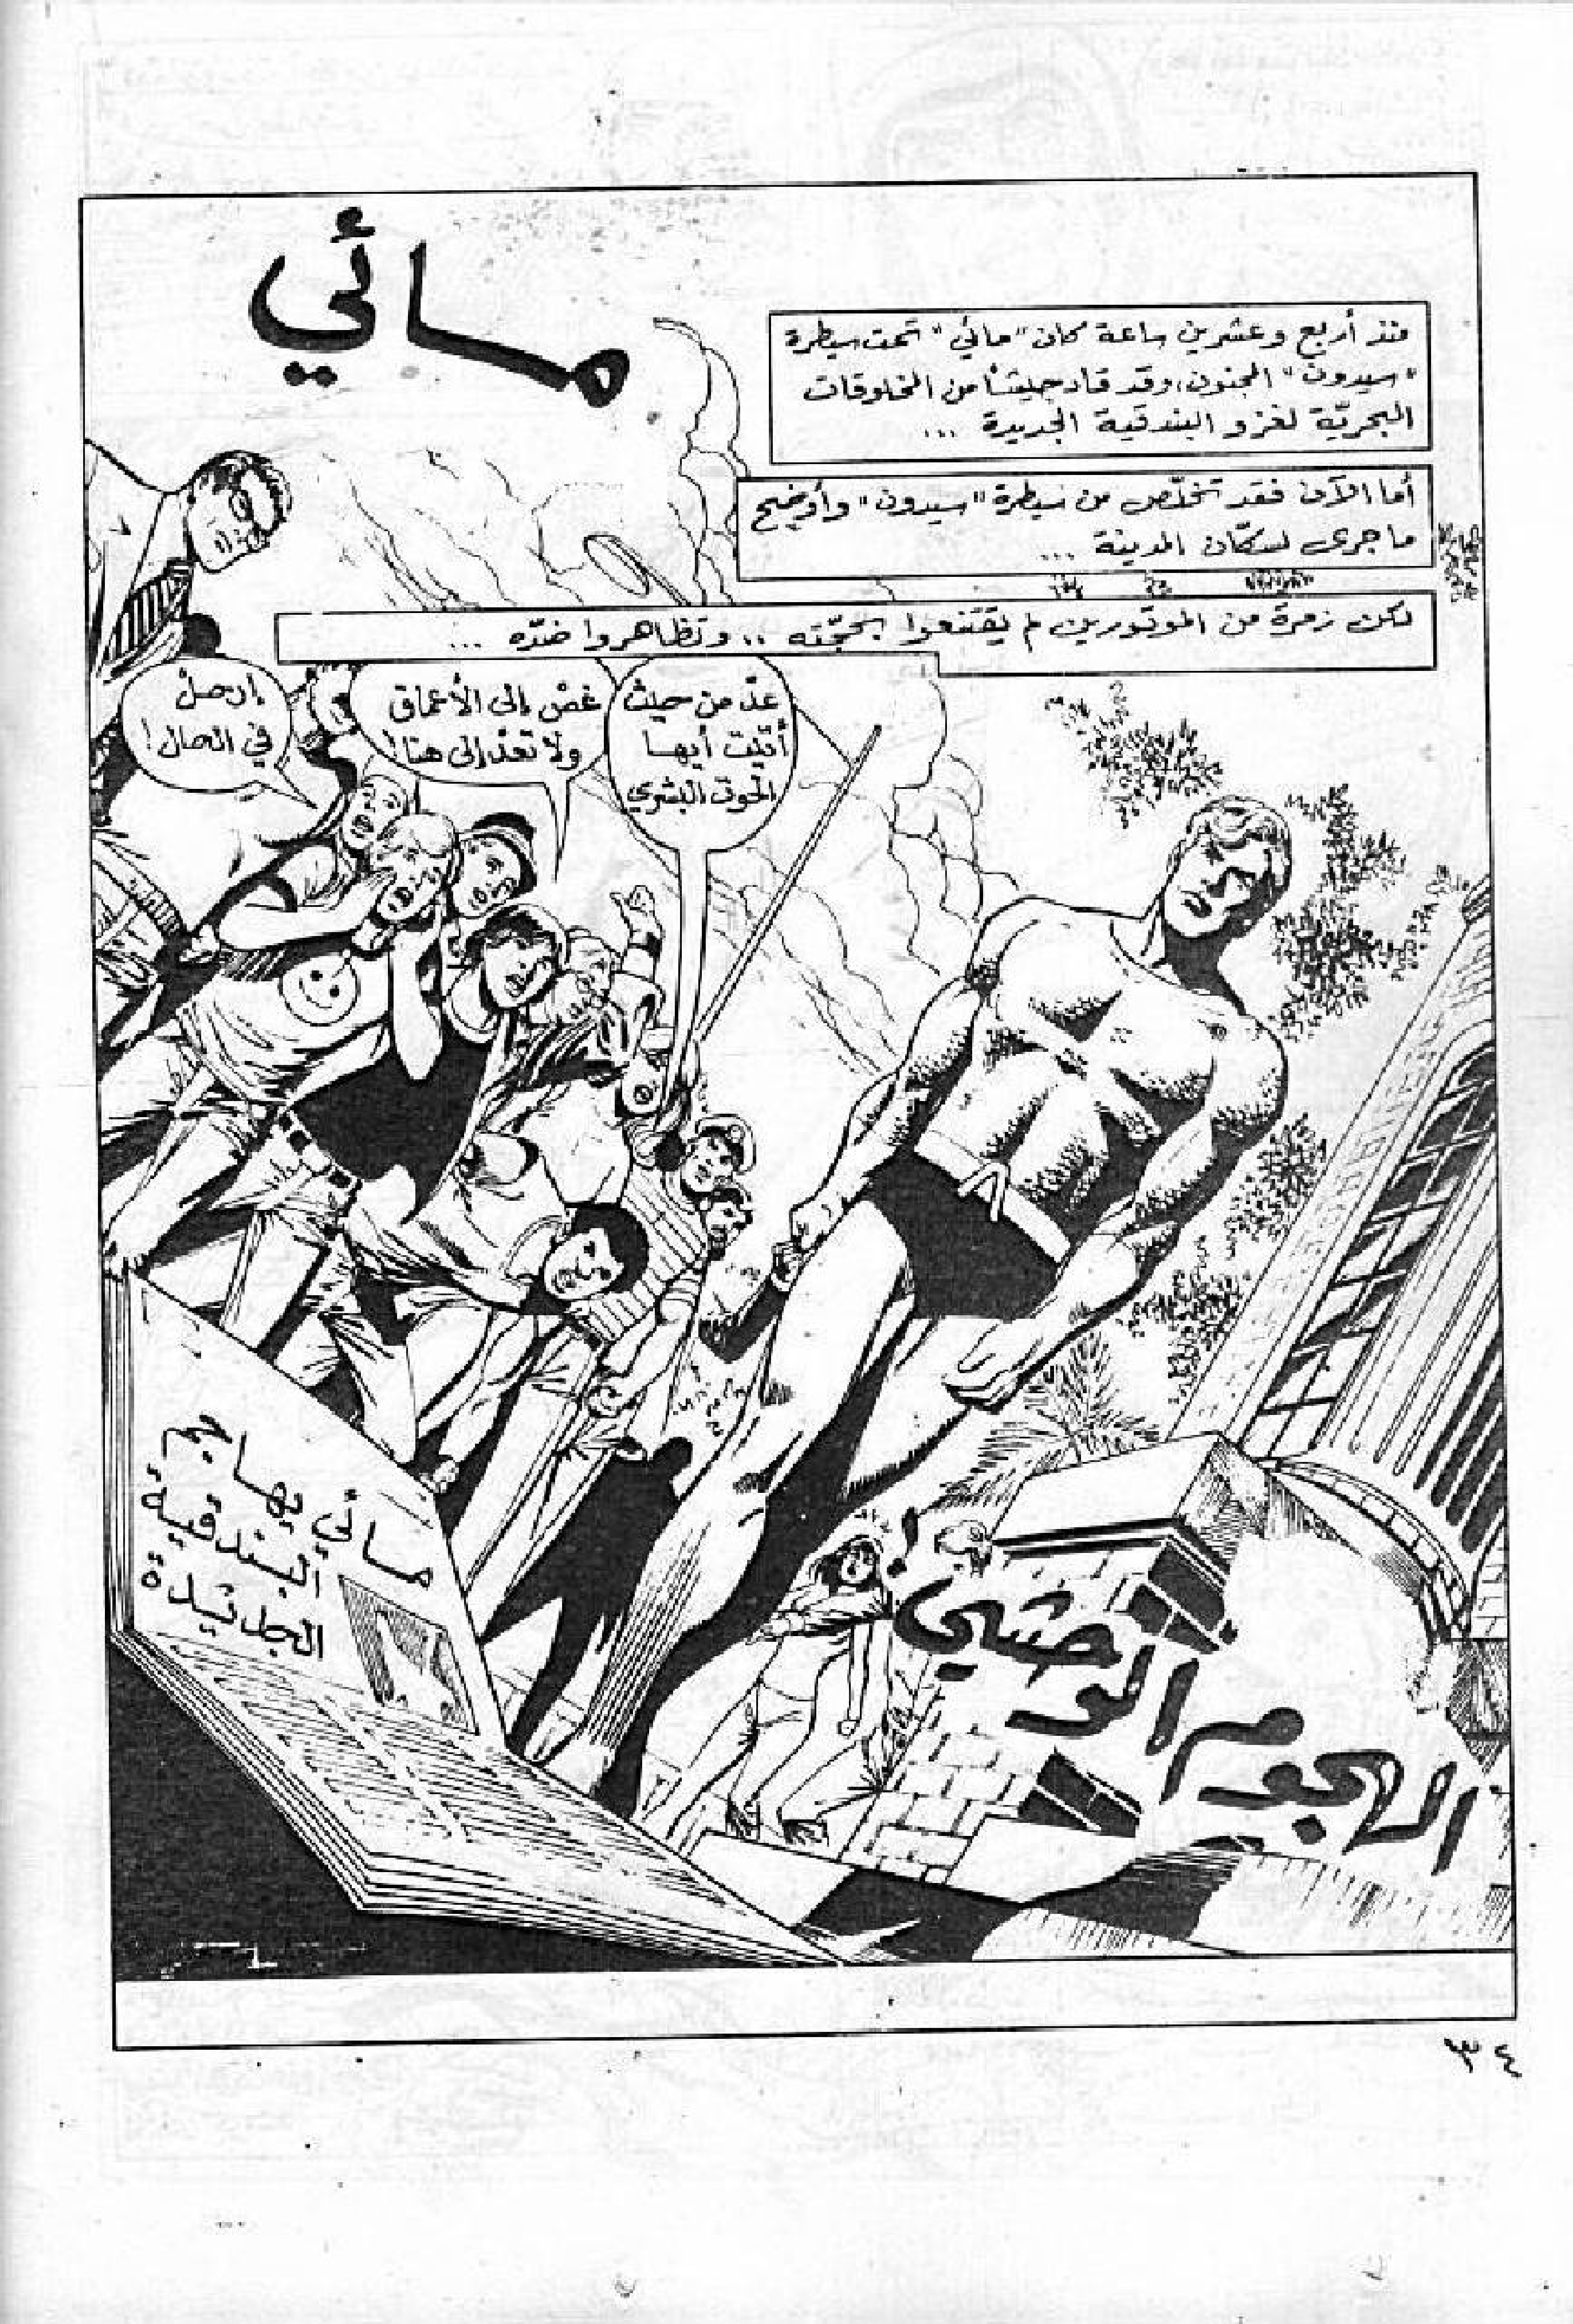 مائي
منذ أربع وعشرين ساعة كان "مائي" تحت سيطرة
"سيدون" المجنون، وقد قاد جيشًا من المخلوقات
البحريّة لغزو البندقية الجديدة ...
أما الآن فقد تخلّص من سيطرة "سيدون" وأوضح
ما جرى لسكّان المدينة ...
لكن زمرة من الموتورين لم يقتنعوا بحجّته .. وتظاهروا ضدّه ...
عد من حيث
أتيت أيها
الحوت البشري
غص إلى الأعماق
ولا تعد إلى هنا!
إرحل
في الحال!
مائي يهاجم
البندقية
الجديدة
الهجوم الوحشي!
٣٤